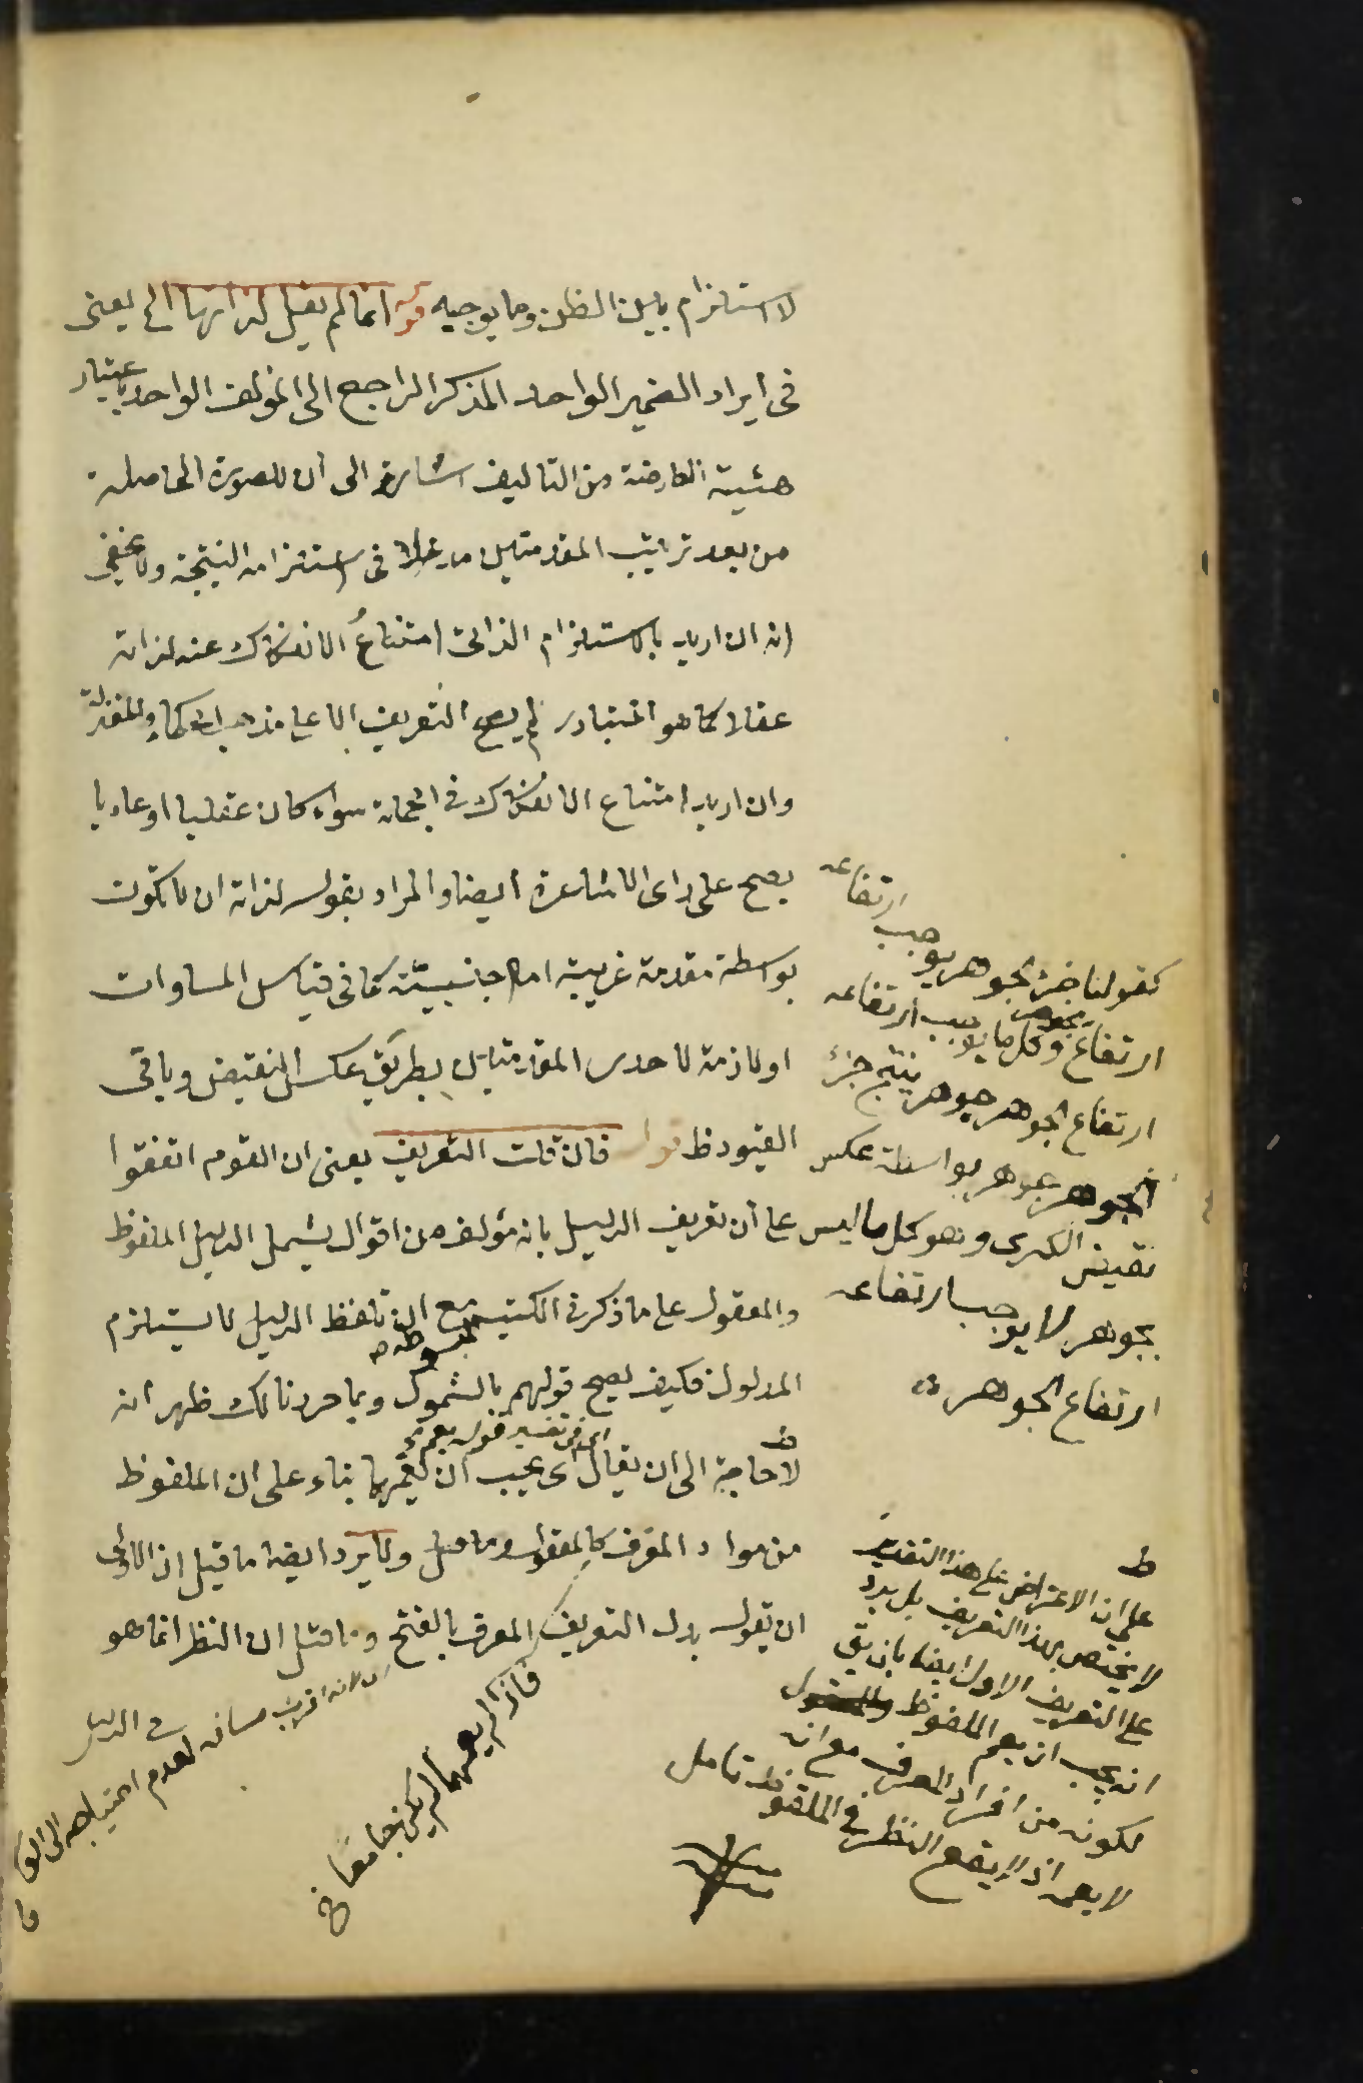 لا استلزام بين الظن وما يوجبه قوله انما لم يقل لذاتها الخ يعنى
فى ايراد الضمير الواحد المذكر الراجع الى المؤلف الواحد باعتبار
هيئته العارضة من التأليف اشارة الى ان للصورة الحاصلة
من بعد ترتيب المقدمتين مدخلا فى استلزامه النتيجة ولا يخفى
انه ان اريد بالاستلزام الذاتى امتناعُ الانفكاك عنه لذاته
عقلا كما هو المتبادر لم يصح التعريف الا على مذهب الحكماء والمعتزلة
وان اريد امتناع الانفكاك فى الجملة سواء كان عقليا او عاديا
يصح على راى الاشاعرة ايضا والمراد بقوله لذاته ان لا تكون
بواسطة مقدمة غريبة اما اجنبيّة كما فى قياس المساوات
او لازمة لاحدى المقدمتين بطريق عكس النقيض وباقى
القيود ظ قوله فان قلت التعريف يعنى ان القوم اتفقوا
على ان تعريف الدليل بانه مؤلف من اقوال يشمل الدليل الملفوظ
والمعقول على ما ذكر فى الكتب المبسوطة مع ان تلفظ الدليل لا يستلزم
المدلول فكيف يصح قولهم بالشمول وبما حررنا لك ظهر انه
اى فى تفسير قوله يعم
لا حاجة الى ان يقال اى يجب ان يعمهما بناء على ان الملفوظ
من مواد المعرف كالمعقول وما قيل ولا يرد ايضا ما قيل ان الاولى
ان يقول بدل التعريف المعرف بالفتح وما قيل ان النظر انما هو
فى الدليل
كقولنا جزء الجوهر يوجب ارتفاعه
ارتفاع الجوهر وكل ما يوجب ارتفاعه
ارتفاع الجوهر جوهر ينتج جزء
الجوهر جوهر بواسطة عكس
نقيض الكبرى وهو كل ما ليس
بجوهر لا يوجب ارتفاعه
ارتفاع الجوهر
على ان الاعتراض على هذا التقدير
لا يختص بهذا التعريف بل يرد
على التعريف الاول ايضا بان يق
انه يجب ان يعم الملفوظ
لكونه من افراد المعرف مع انه
لا يعمه اذ لا يقع النظر فى الملفوظ تأمل
فاذا لم يعمهما لم يكن جامعا
لعدم احتياجه الى